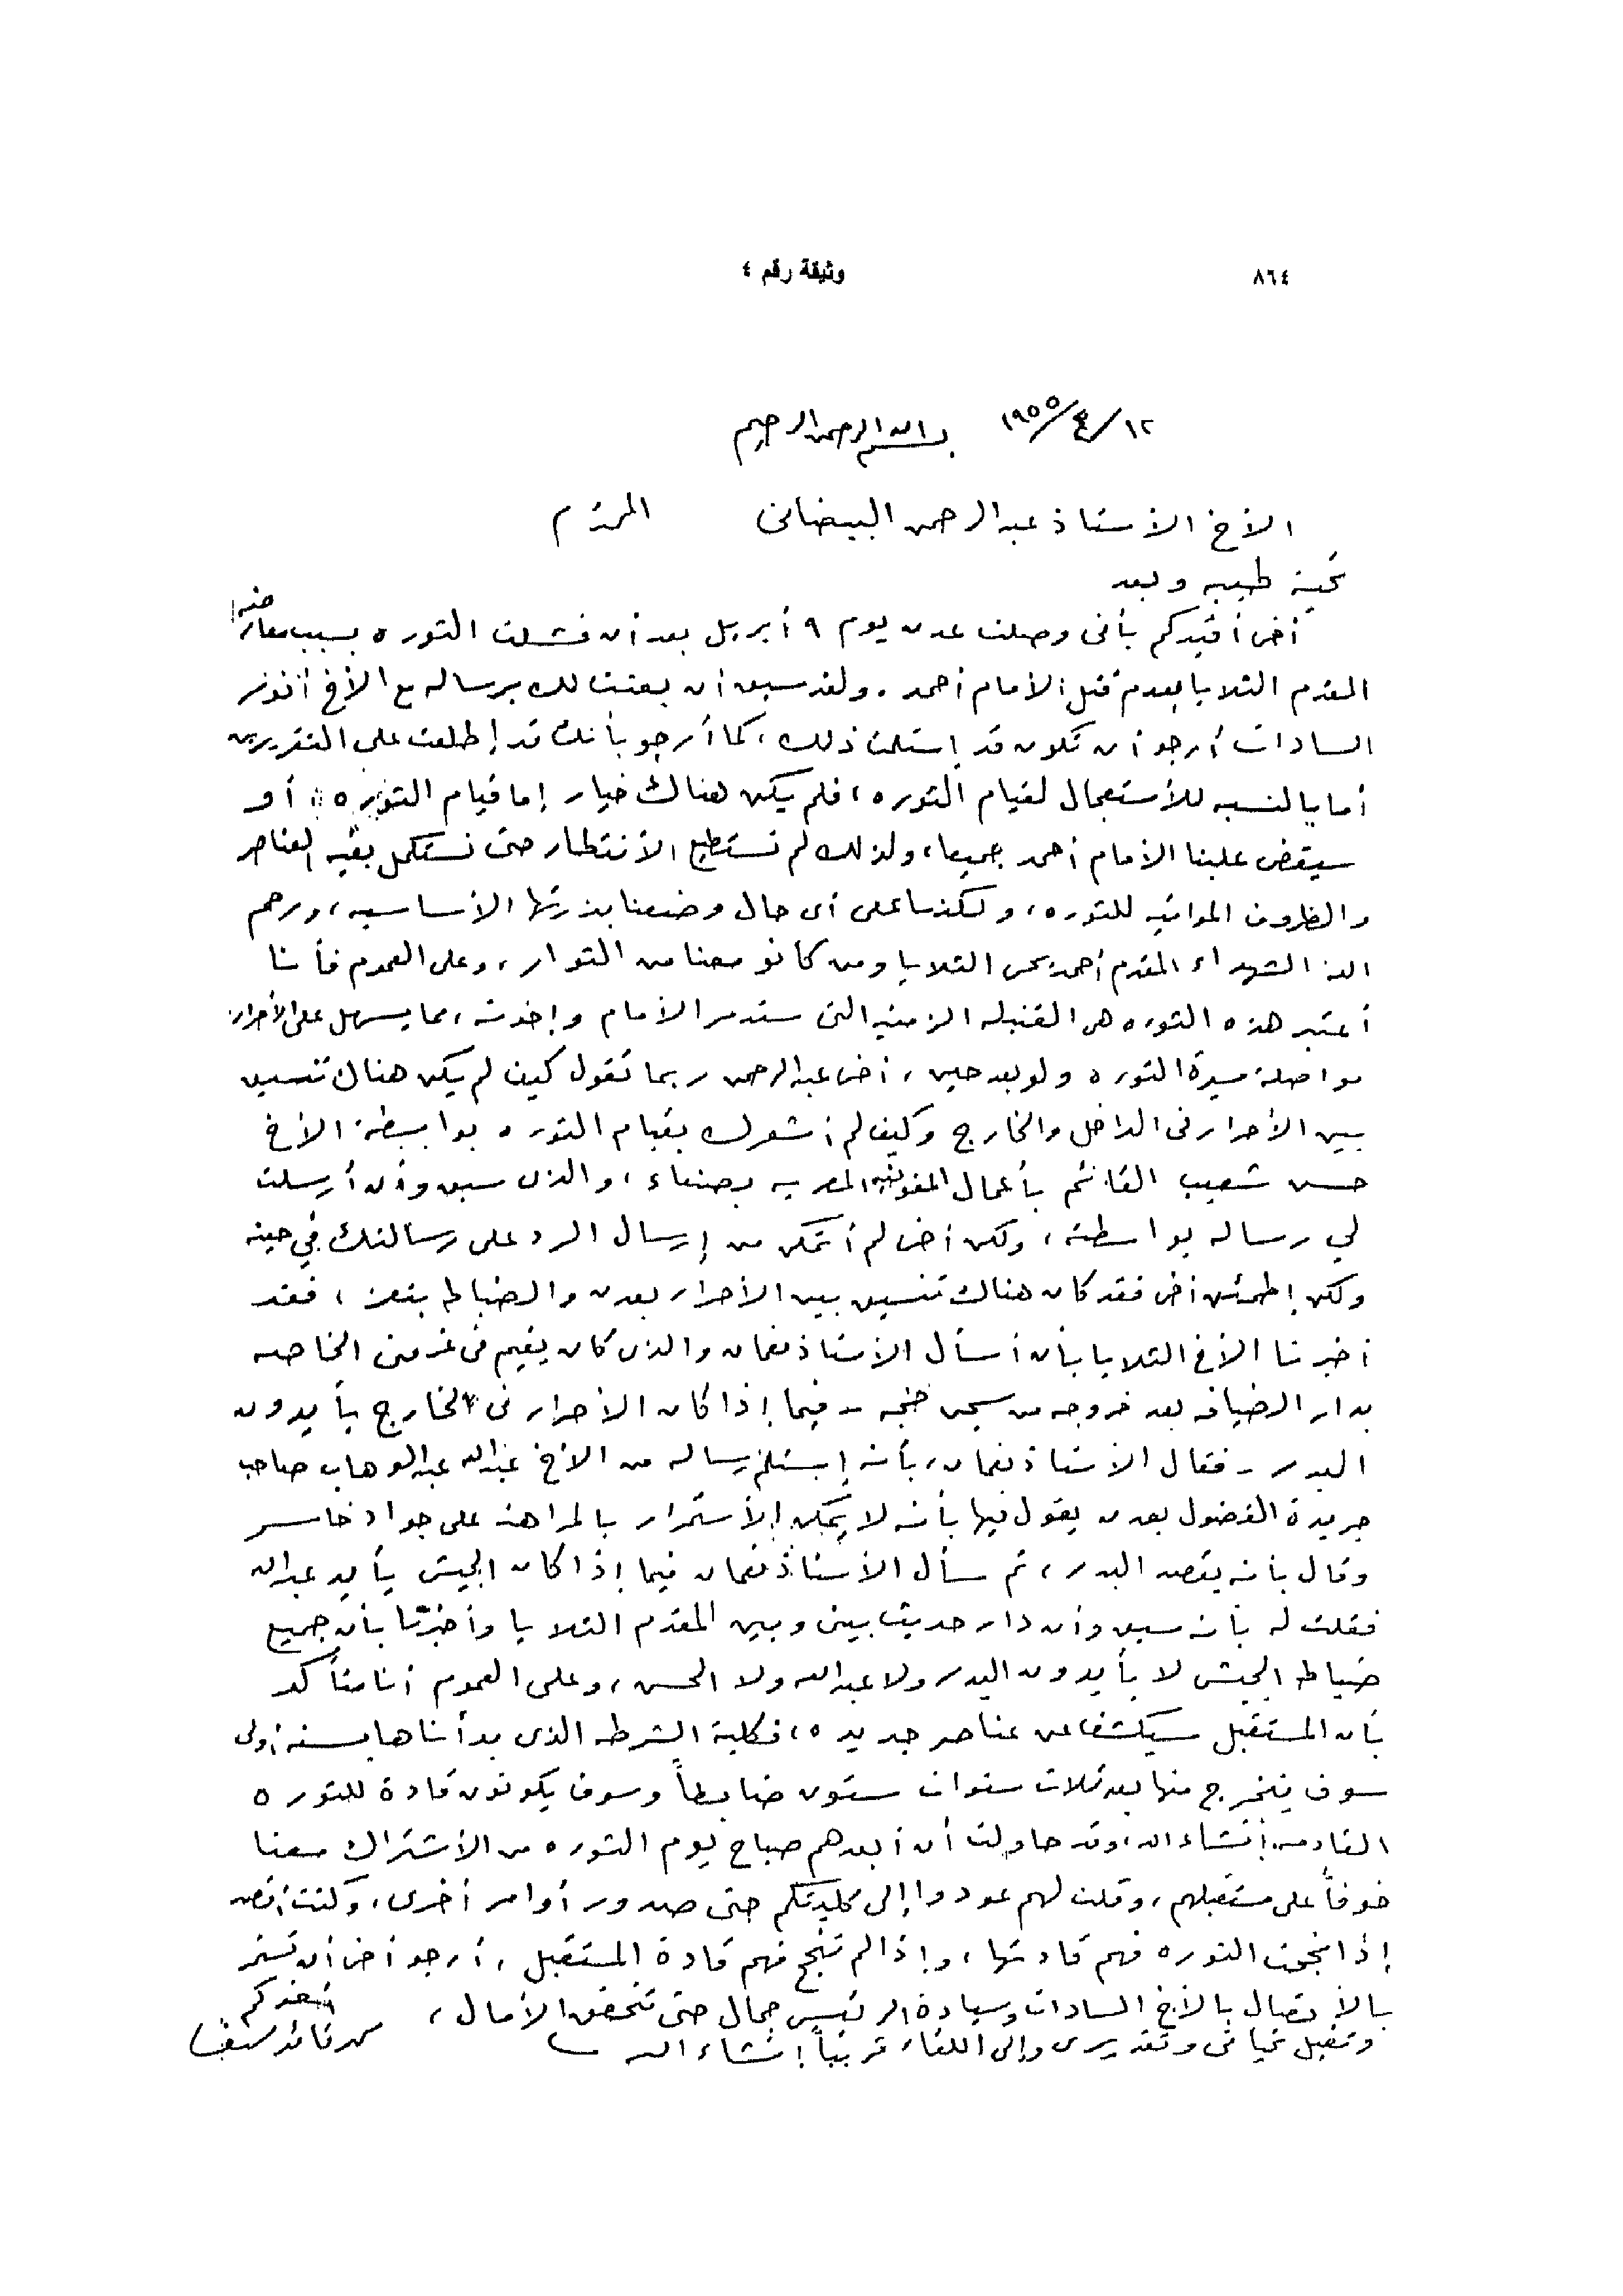 ٨٦٤
وثيقة رقم ٤
١٢/٤/١٩٥٥
بسم الله الرحمن الرحيم
الأخ الأستاذ عبدالرحمن البيضانى المحترم
تحية طيبه وبعد
أخى أفيدكم بأنى وصلت عدن يوم ٩ أبريل بعد أن فشلت الثوره بسبب معارضه
المقدم الثلايا بعدم قتل الأمام أحمد. ولقد سبق أن بعثت لك برساله مع الأخ أنور
السادات أرجو أن تكون قد إستلمت ذلك، كما أرجو بأنك قد إطلعت على التقريرين
أما بالنسبه للأستعجال لقيام الثوره، فلم يكن هناك خيار إما قيام الثوره أو
سيقضى علينا الأمام أحمد جميعا، ولذلك لم نستطيع الأنتظار حتى نستكمل بقيه العناصر
والظروف المواتيه للثوره، ولكننا على أى حال وضعنا بذرتها الأساسيه، ورحم
الله الشهداء المقدم أحمد يحى الثلايا ومن كانو معنا من الثوار، وعلى العموم فأنا
أعتبر هذه الثوره هى القنبله الزمنيه التى ستدمر الأمام وإخوته، مما يسهل على الأحرار
مواصلة مسيرة الثوره ولو بعد حين، أخى عبدالرحمن ربما تقول كيف لم يكن هناك تنسيق
بين الأحرار فى الداخل والخارج وكيف لم أشعرك بقيام الثوره بواسطة الأخ
حسن شعيب القائم بأعمال المفوضيه المصريه بصنعاء، والذى سبق وأن أرسلت
لي رساله بواسطته، ولكن أخى لم أتمكن من إرسال الرد على رسالتك في حينه
ولكن إطمئن أخى فقد كان هناك تنسيق بين الأحرار بعدن والضباط بتعز، فقد
أخبرنا الأخ الثلايا بأن أسأل الأستاذ نعمان والذى كان يقيم فى غرفتى الخاصه
بدار الضيافه بعد خروجه من سجن حجه - فيما إذا كان الأحرار فى الخارج يأيدون
البدر - فقال الأستاذ نعمان، بأنه إستلم رساله من الأخ عبدالله عبدالوهاب صاحب
جريدة الفضول بعدن يقول فيها بأنه لا يمكن الأستمرار بالمراهنه على جواد خاسر
وقال بأنه يقصد البدر، ثم سأل الأستاذ نعمان فيما إذا كان الجيش يأيد عبدالله
فقلت له بأنه سبق وأن دار حديث بينى وبين المقدم الثلايا وأخبرنا بأن جميع
ضباط الجيش لا يأيدون البدر ولا عبدالله ولا الحسن، وعلى العموم أنا متأكد
بأن المستقبل سيكشف عن عناصر جديده، فكلية الشرطه الذى بدأناها بسنه أولى
سوف يتخرج منها بعد ثلاث سنوات ستون ضابطاً وسوف يكونون قادة للثوره
القادمه إنشاءالله، وقد حاولت أن أبعدهم صباح يوم الثوره من الأشتراك معنا
خوفاً على مستقبلهم، وقلت لهم عودوا إلى كليتكم حتى صدور أوامر أخرى، وكنت أقصد
إذا نجحت الثوره فهم قادتها، وإذا لم تنجح فهم قادة المستقبل، أرجو أخى أن تستمر
بالأتصال بالأخ السادات وسيادة الرئيس جمال حتى تتحقق الأمال،
وتقبل تحياتى وتقديرى وإلى اللقاء قريباً إنشاء الله
أخوكم
محمد قائد سيف